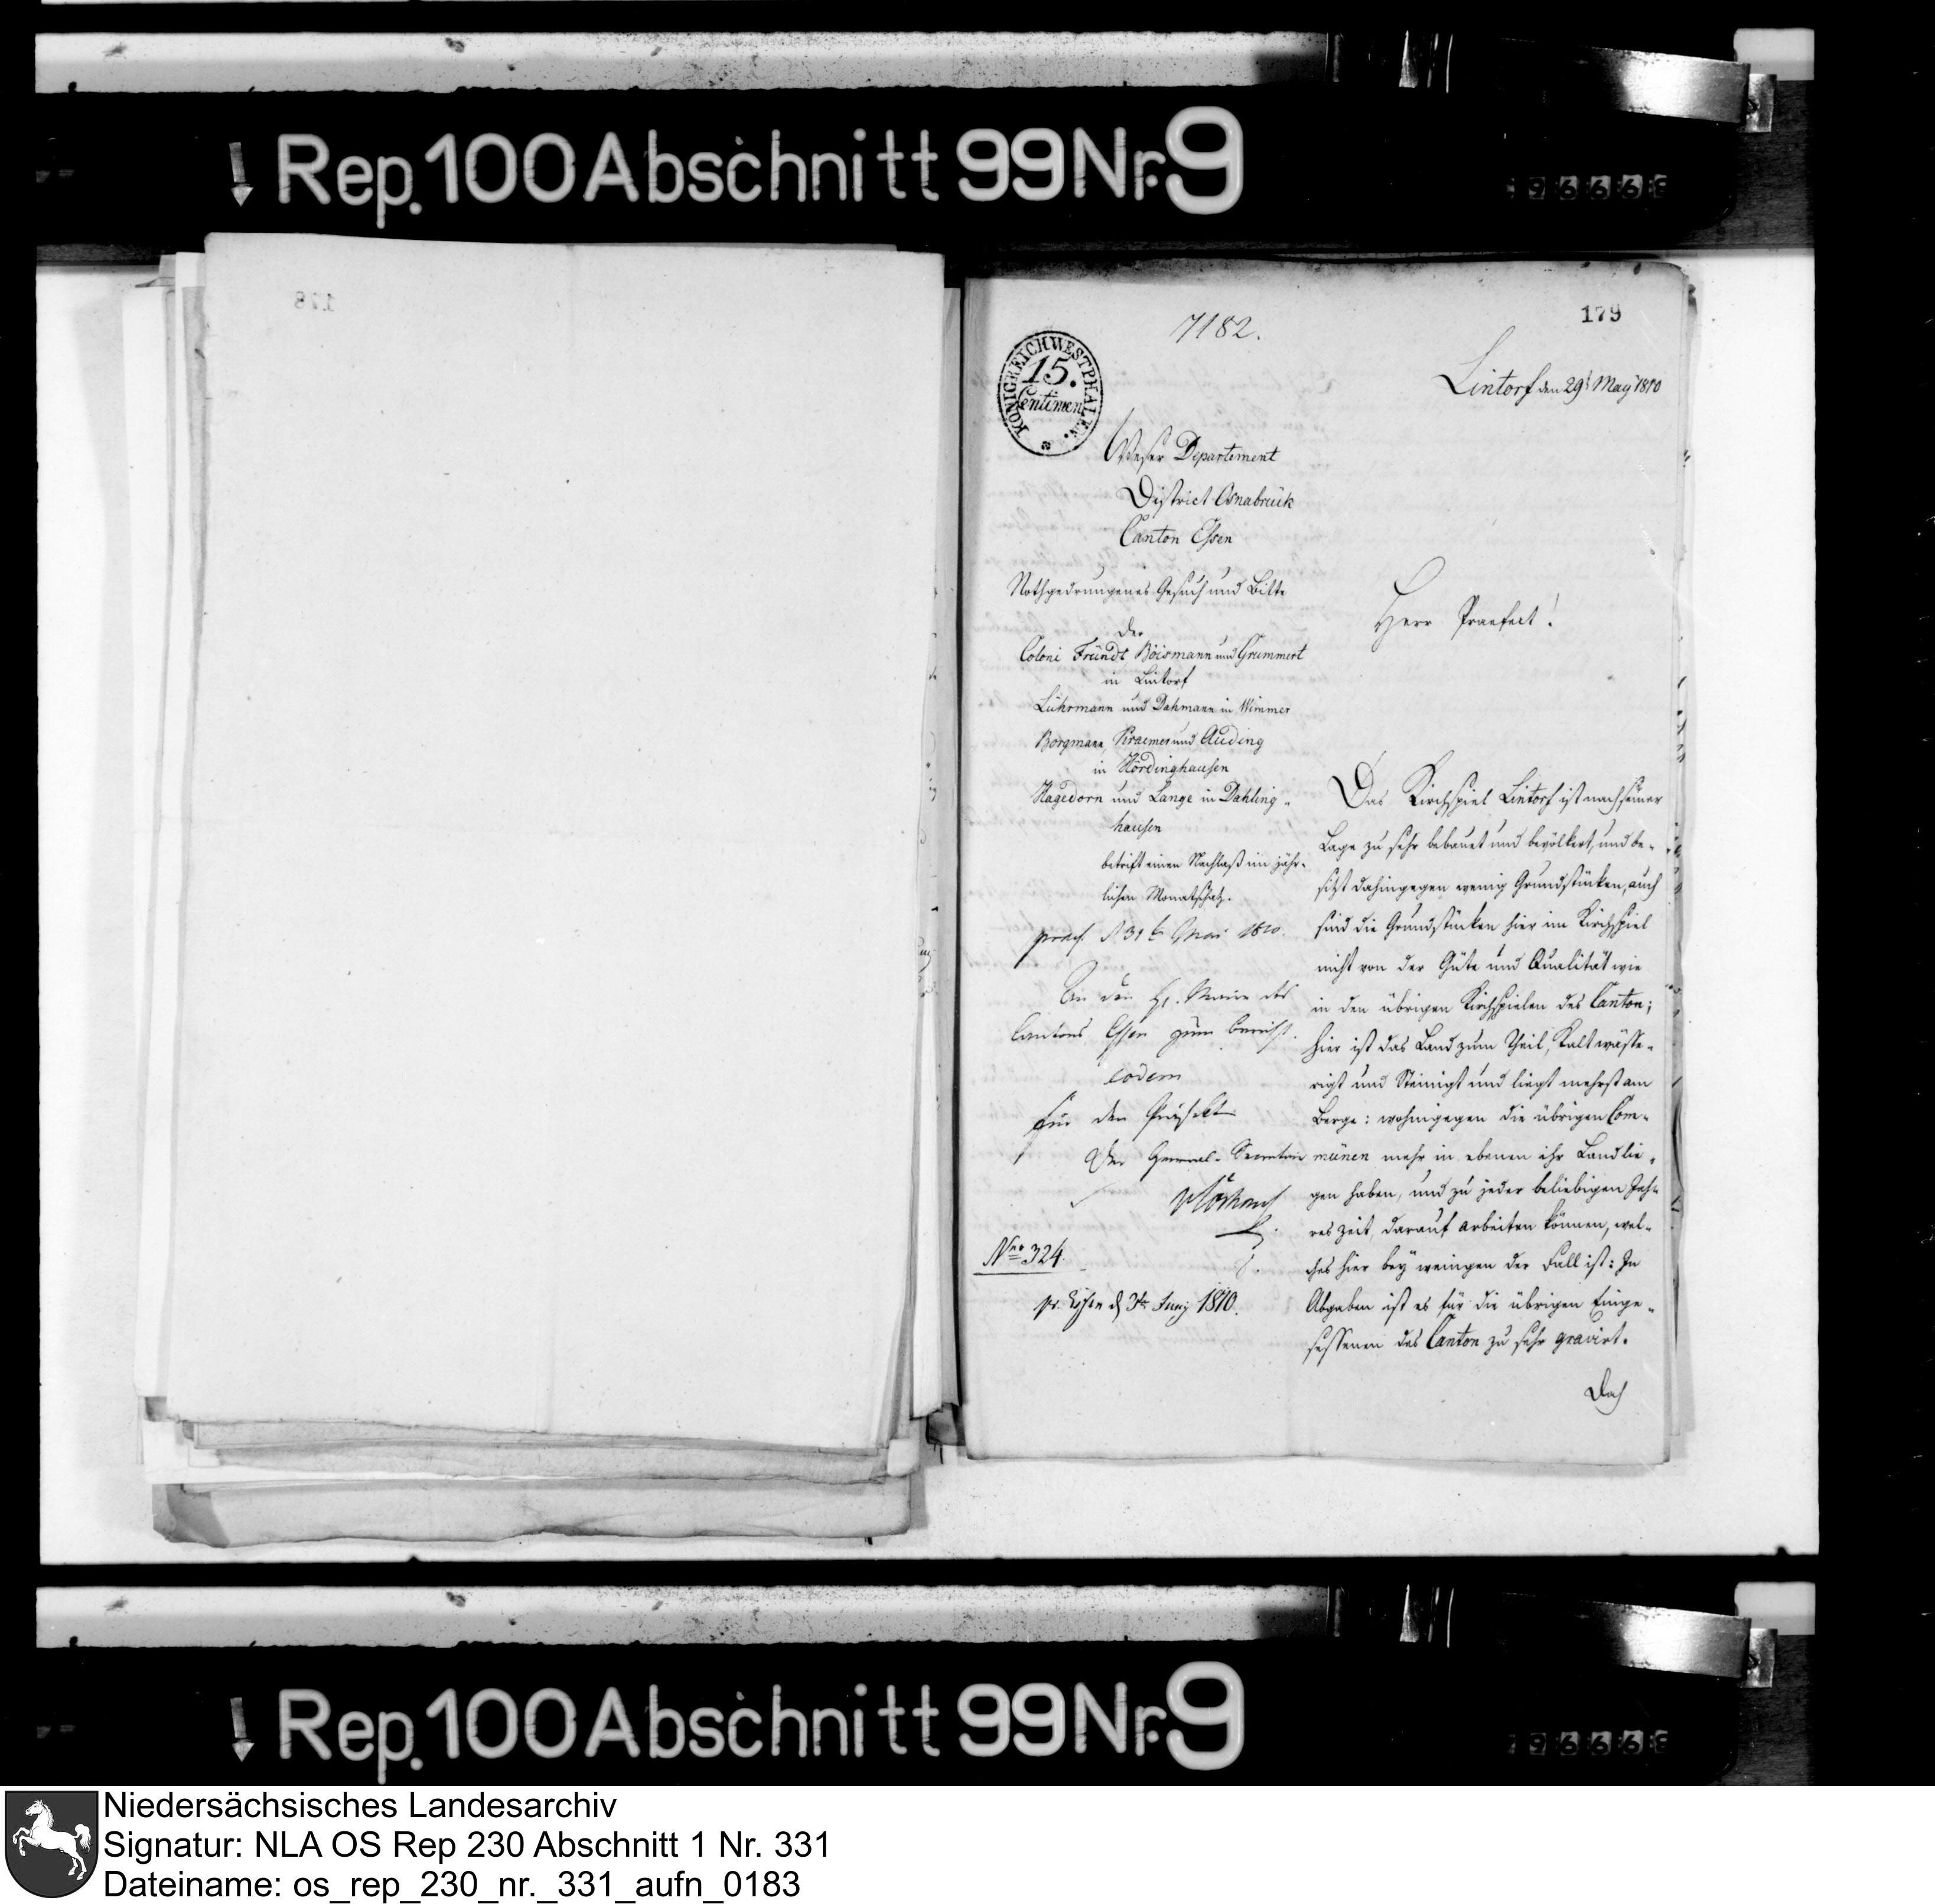 ↓ Rep. 100 Abschnitt 99 Nr. 9
178
179
7182.
KÖNIGREICH WESTPHALEN.
15.
Centimen
Lintorf den 29t May 1810
Weser Departement
District Osnabrück
Canton Essen
Nothgedrungenes Gesuch und Bitte
der
Coloni Fründt Böismann und Grummert
in Lintorf
Lührmann und Dahmann in Wimmer
Borgmann, Kraemer und Auding
in Hördinghausen
Hagedorn und Lange in Dahling-
hausen
betrift einen Nachlaß im jähr-
lichen Monatschatz.
praes. d 31 t Mai 1810.
An den H. Maire des
Cantons Essen zum Bericht.
eodem
Für den Präfekt
Der General-Secretair
Nro 324.
pr. Essen d 3te Juny 1810.
Herr Praefect!
Das Kirchspiel Lintorf ist nach seiner
Lage zu sehr bebauet und bevölkert, und be-
sitzt dahingegen wenig Grundstücken, auch
sind die Grundstücken hier im Kirchspiel
nicht von der Güte und Qualität wie
in den übrigen Kirchspielen des Canton;
hier ist das Land zum Theil, Kalt wässe-
rigt und Steinigt und liegt mehrst am
Berge: wohingegen die übrigen Com-
münen mehr in ebenen ihr Land lie-
gen haben, und zu jeder beliebigen Jah-
res zeit, darauf arbeiten können, wel-
ches hier bey weinigen der Fall ist: In
Abgaben ist es für die übrigen Einge-
sessenen des Canton zu sehr gravirt.
Doch
↓ Rep. 100 Abschnitt 99 Nr. 9
Niedersächsisches Landesarchiv
Signatur: NLA OS Rep 230 Abschnitt 1 Nr. 331
Dateiname: os_rep_230_nr._331_aufn_0183